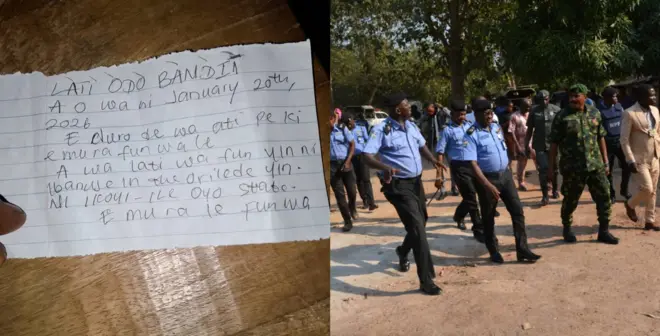 LÀTÌ ODO BANDIT
A O wa ni January 20th,
2026
E duro de wa ati pe ki
e mura fun wa le
A wa lati wa fun yin ni
in the orilede yin.
Ni IKOYI-ILE OYO STATE.
E mura le fun wa